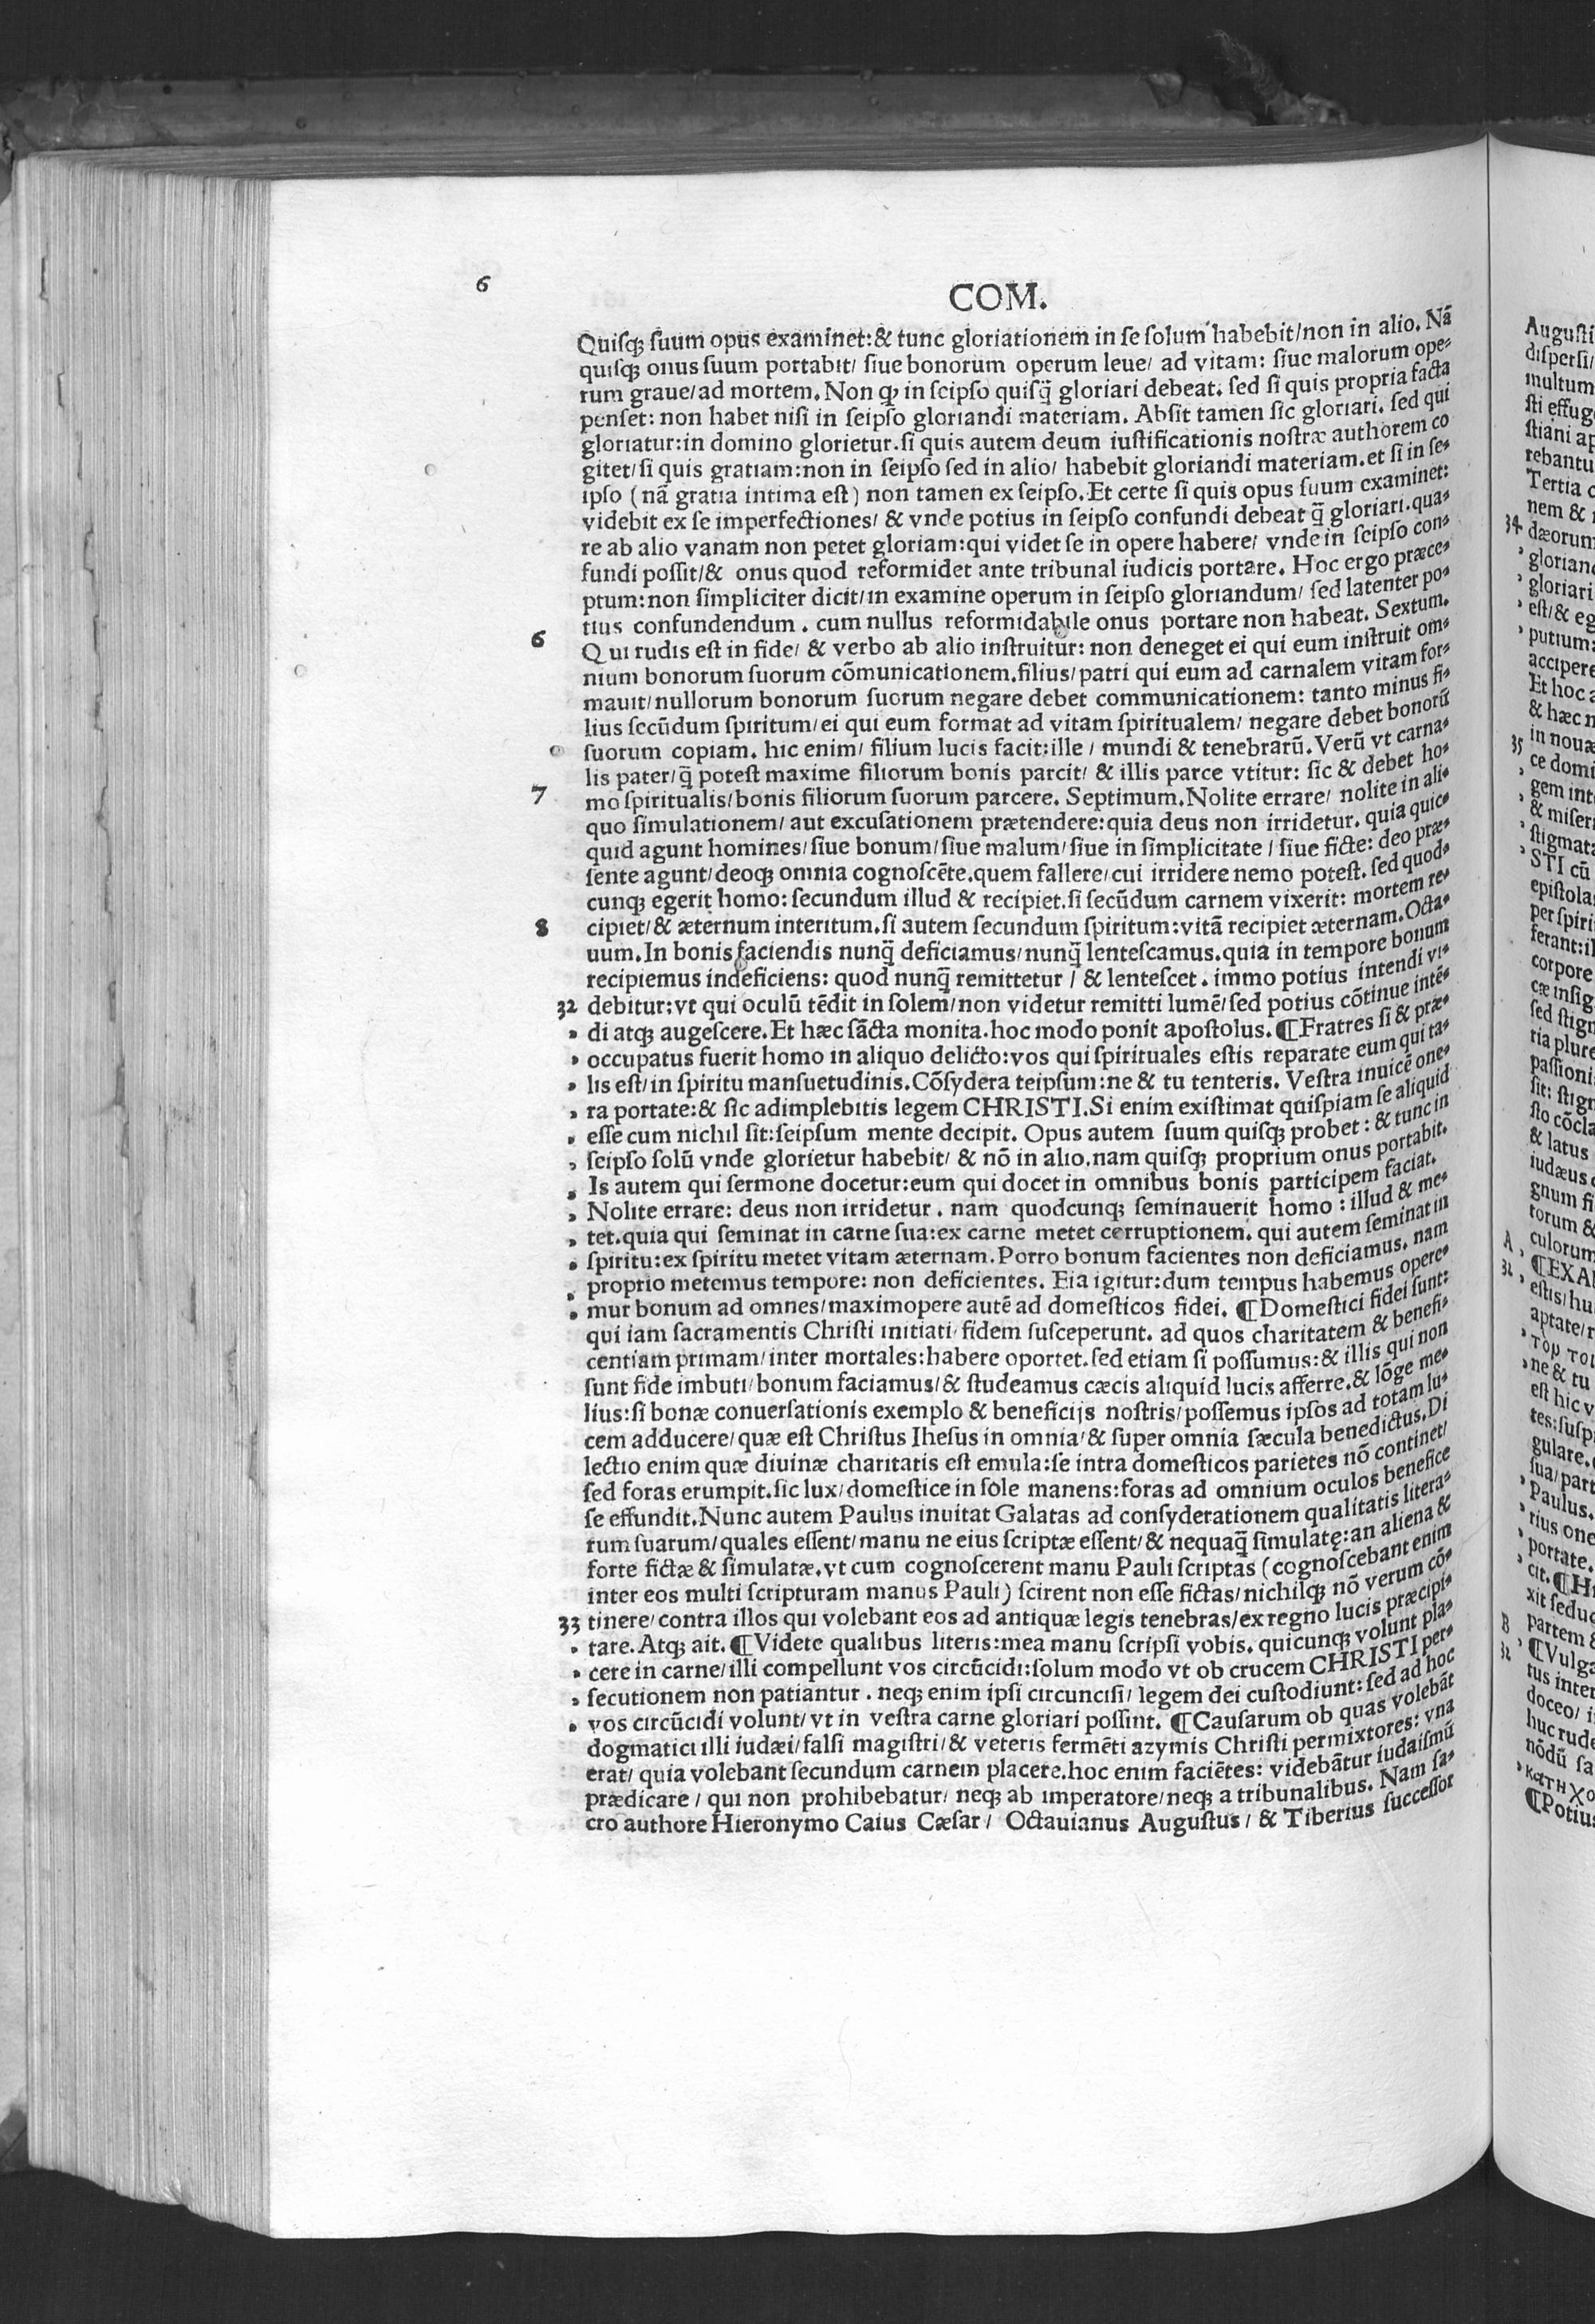 6
COM.
Quiſqꝫ ſuum opus examinet:& tunc gloriationem in ſe ſolum habebit/non in alio. Nã
quiſqꝫ onus ſuum portabit/ ſiue bonorum operum leue/ ad vitam: ſiue malorum ope-
rum graue/ad mortem. Non ꝙ in ſeipſo quiſq̃ gloriari debeat. ſed ſi quis propria facta
penſet: non habet niſi in ſeipſo gloriandi materiam. Abſit tamen ſic gloriari. ſed qui
gloriatur:in domino glorietur.ſi quis autem deum iuſtificationis noſtræ authorem co
gitet/ſi quis gratiam:non in ſeipſo ſed in alio/ habebit gloriandi materiam.et ſi in ſe-
ipſo (nã gratia intima eſt) non tamen ex ſeipſo. Et certe ſi quis opus ſuum examinet:
videbit ex ſe imperfectiones/ & vnde potius in ſeipſo confundi debeat q̃ gloriari.qua-
re ab alio vanam non petet gloriam:qui videt ſe in opere habere/ vnde in ſeipſo con-
fundi poſſit/& onus quod reformidet ante tribunal iudicis portare. Hoc ergo præce-
ptum:non ſimpliciter dicit/in examine operum in ſeipſo gloriandum/ ſed latenter po-
tius confundendum . cum nullus reformidabile onus portare non habeat. Sextum.
6 Qui rudis eſt in fide/ & verbo ab alio inſtruitur: non deneget ei qui eum inſtruit om-
nium bonorum ſuorum cõmunicationem.filius/patri qui eum ad carnalem vitam for-
mauit/nullorum bonorum ſuorum negare debet communicationem: tanto minus fi-
lius ſecũdum ſpiritum/ei qui eum format ad vitam ſpiritualem/ negare debet bonorũ
ſuorum copiam. hic enim/ filium lucis facit:ille / mundi & tenebrarũ.Verũ vt carna-
lis pater/q̃ poteſt maxime filiorum bonis parcit/ & illis parce vtitur: ſic & debet ho-
7 mo ſpiritualis/bonis filiorum ſuorum parcere. Septimum.Nolite errare/ nolite in ali-
quo ſimulationem/ aut excuſationem prætendere:quia deus non irridetur. quia quic-
quid agunt homines/ſiue bonum/ſiue malum/ſiue in ſimplicitate / ſiue ficte: deo præ-
ſente agunt/deoqꝫ omnia cognoſcẽte.quem fallere/cui irridere nemo poteſt. ſed quod-
cunqꝫ egerit homo: ſecundum illud & recipiet.ſi ſecũdum carnem vixerit: mortem re-
8 cipiet/& æternum interitum.ſi autem ſecundum ſpiritum:vitã recipiet æternam.Octa-
uum. In bonis faciendis nunq̃ deficiamus/nunq̃ lenteſcamus.quia in tempore bonum
recipiemus indeficiens: quod nunq̃ remittetur / & lenteſcet . immo potius intendi vi-
32 debitur:vt qui oculũ tẽdit in ſolem/non videtur remitti lumẽ/ſed potius cõtinue intẽ-
di atqꝫ augeſcere. Et hæc ſãcta monita.hoc modo ponit apoſtolus. ¶Fratres ſi & præ-
occupatus fuerit homo in aliquo delicto:vos qui ſpirituales eſtis reparate eum qui ta-
lis eſt/in ſpiritu manſuetudinis.Cõſydera teipſum:ne & tu tenteris. Veſtra inuicẽ one-
ra portate:& ſic adimplebitis legem CHRISTI.Si enim exiſtimat quiſpiam ſe aliquid
eſſe cum nichil ſit:ſeipſum mente decipit. Opus autem ſuum quiſqꝫ probet: & tunc in
ſeipſo ſolũ vnde glorietur habebit/ & nõ in alio.nam quiſqꝫ proprium onus portabit.
Is autem qui ſermone docetur:eum qui docet in omnibus bonis participem faciat.
Nolite errare: deus non irridetur . nam quodcunqꝫ ſeminauerit homo : illud & me-
tet.quia qui ſeminat in carne ſua:ex carne metet corruptionem. qui autem ſeminat in
ſpiritu:ex ſpiritu metet vitam æternam.Porro bonum facientes non deficiamus. nam
proprio metemus tempore: non deficientes. Eia igitur:dum tempus habemus opere-
mur bonum ad omnes/maximopere autẽ ad domeſticos fidei. ¶Domeſtici fidei ſunt:
qui iam ſacramentis Chriſti initiati/ fidem ſuſceperunt. ad quos charitatem & benefi-
centiam primam/inter mortales:habere oportet.ſed etiam ſi poſſumus:& illis qui non
ſunt fide imbuti/bonum faciamus/& ſtudeamus cæcis aliquid lucis afferre.& lõge me-
lius:ſi bonæ conuerſationis exemplo & beneficijs noſtris/poſſemus ipſos ad totam lu-
cem adducere/quæ eſt Chriſtus Iheſus in omnia/& ſuper omnia ſæcula benedictus.Di
lectio enim quæ diuinæ charitatis eſt emula:ſe intra domeſticos parietes nõ continet/
ſed foras erumpit.ſic lux/domeſtice in ſole manens:foras ad omnium oculos benefice
ſe effundit.Nunc autem Paulus inuitat Galatas ad conſyderationem qualitatis litera-
rum ſuarum/quales eſſent/manu ne eius ſcriptæ eſſent/& nequaq̃ ſimulatę:an aliena &
forte fictæ & ſimulatæ.vt cum cognoſcerent manu Pauli ſcriptas (cognoſcebant enim
inter eos multi ſcripturam manus Pauli) ſcirent non eſſe fictas/nichilqꝫ nõ verum cõ-
33 tinere/contra illos qui volebant eos ad antiquæ legis tenebras/ex regno lucis præcipi-
tare. Atqꝫ ait. ¶Videte qualibus literis:mea manu ſcripſi vobis. quicunqꝫ volunt pla-
cere in carne/illi compellunt vos circũcidi:ſolum modo vt ob crucem CHRISTI per-
ſecutionem non patiantur . neqꝫ enim ipſi circunciſi/ legem dei cuſtodiunt: ſed ad hoc
vos circũcidi volunt/vt in veſtra carne gloriari poſſint. ¶Cauſarum ob quas volebãt
dogmatici illi iudæi/falſi magiſtri/& veteris fermẽti azymis Chriſti permixtores: vna
erat/ quia volebant ſecundum carnem placere.hoc enim faciẽtes: videbãtur iudaiſmũ
prædicare / qui non prohibebatur/ neqꝫ ab imperatore/neqꝫ a tribunalibus. Nam ſa-
cro authore Hieronymo Caius Cæſar / Octauianus Auguſtus / & Tiberius ſucceſſor